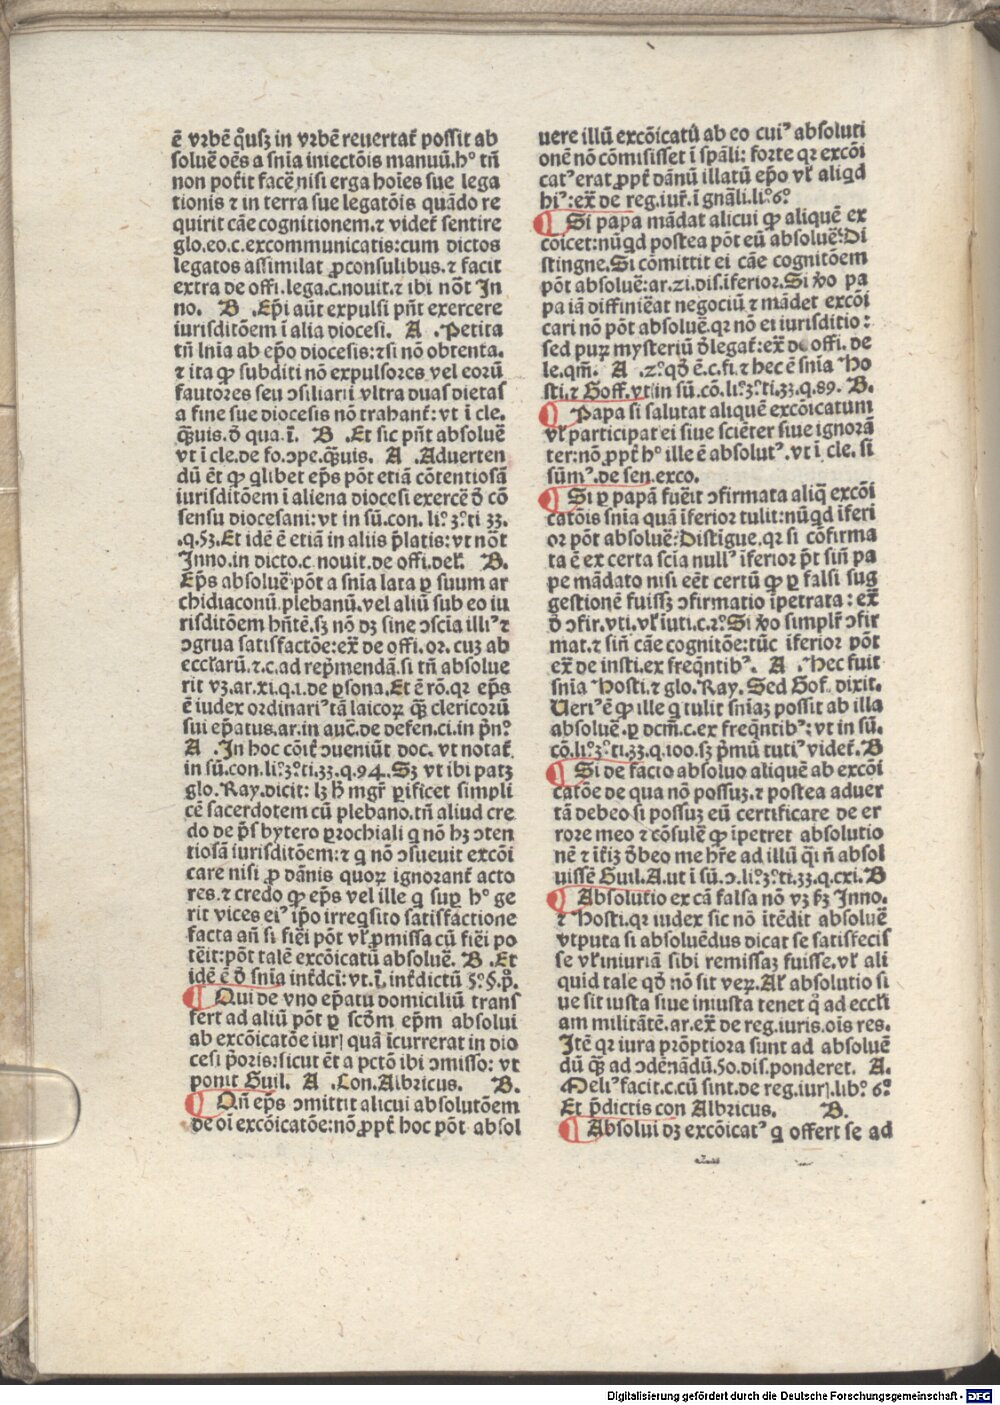 ē vrbē qͦusꝫ in vrbē reuertat᷑ possit ab
soluē oēs a snīa iniectōis manuū.hͦ tn̄
non potit facē nisi erga hoīes sue lega
tionis ⁊ in terra sue legatōis quādo re
quirit cāe cognitionem.⁊ videt᷑ sentire
glo.eo.c.excommunicatis:cum dictos
legatos assimilat ꝓconsulibus.⁊ facit
extra de offi.lega.c.nouit.⁊ ibi nōt In
no. B .Ep̄i aūt expulsi pn̄t exercere
iurisditōem ī alia diocesi. A .Petita
tn̄ lnīa ab ep̄o diocesis:⁊ si nō obtenta.
⁊ ita ꝙ subditi nō expulsores vel eorū
fautores seu ↄsiliarii vltra duas dietas
a fine sue diocesis nō trahant᷑: vt ī cle.
q̄ꝫuis.d̄ qua.ī. B .Et sic pn̄t absoluē
vt ī cle.de fo.ↄpe.q̄ꝫuis. A .Aduerten
dū ēt ꝙ qlibet ep̄s pōt etiā cōtentiosā
iurisditōem ī aliena diocesi exercē d̄ cō
sensu diocesani: vt in sū.con. liꝰ.3ͦ.ti 33.
.q.53.Et idē ē etiā in aliis p̄latis: vt nōt
Inno.in dicto.c nouit.de offi.del̄. B.
Ep̄s absoluē pōt a snīa lata ꝑ suum ar
chidiaconū.plebanū.vel aliū sub eo iu
risditōem hn̄tē.sꝫ nō dꝫ sine ↄscīa illiꝰ ⁊
ↄgrua satisfactōe:ex̄ de offi.or. cuꝫ ab
eccl̄arū.⁊.c.ad rep̄mendā.si tn̄ absolue
rit vꝫ.ar.xi.q.i.de ꝑsona.Et ē rō.qꝛ ep̄s
ē iudex ordinariꝰ tā laicoꝝ q̄ꝫ clericorū
sui ep̄atus.ar.in auc̄.de defen.ci.in p̄nꝰ
A .In hoc cōit᷑ ↄueniūt doc. vt notat᷑
in sū.con.liꝰ.3ͦ.ti.33.q.94.Sꝫ vt ibi patꝫ
glo.Ray.dicit: lꝫ h̄ mgr̄ ꝑificet simpli
cē sacerdotem cū plebano.tn̄ aliud cre
do de p̄sbytero ꝑrochiali q nō hꝫ ↄten
tiosā iurisditōem:⁊ q nō ↄsueuit excōi
care nisi ꝓ dānis quoꝝ ignorant᷑ acto
res.⁊ credo ꝙ ep̄s vel ille q suꝑ hͦ ge
rit vices eiꝰ ip̄o irreqsito satisfactione
facta an̄ si fiēi pōt vl̄ ꝓmissa cū fiēi po
tēit:pōt talē excōicatū absoluē. B .Et
idē ē d̄ snīa int᷑dc̄i: vt.ī. int᷑dictū 5ͦ.§.pͦ.
Qui de vno ep̄atu domiciliū trans
fert ad aliū pōt ꝑ scd̄m ep̄m absolui
ab excōicatōe iurꝭ quā īcurrerat in dio
cesi p̄oris:sicut ēt a pctō ibi ↄmisso: vt
ponit Guil. A .Con.Albricus. B.
Qn̄ ep̄s ↄmittit alicui absolutōem
de oī excōicatōe:nō ꝓpt᷑ hoc pōt absol
uere illū excōicatū ab eo cuiꝰ absoluti
onē nō cōmisisset ī sp̄ali: forte qꝛ excōi
catꝰ erat ꝓpt᷑ dānū illatū ep̄o vl̄ aliqd
hiꝰ:ex̄ de reg.iur̄.ī gnāli.liꝰ.6ͦ
Si papa mādat alicui ꝙ aliquē ex
coīcet:nūqd postea pōt eū absoluē:Di
stingne.Si cōmittit ei cāe cognitōem
pōt absoluē:ar.21.dis.īferior.Si v̄o pa
pa iā diffiniēat negociū ⁊ mādet excōi
cari nō pōt absoluē.qꝛ nō ei iurisditio:
sed puꝝ mysteriū d̄legat᷑:ex̄ de offi. de
le.qm̄. A .2ͦ.qd̄ ē.c.fi.⁊ hec ē snīa Ho
sti.⁊ Goff.vt in sū.cō.liꝰ.3ͦ.ti.33.q.89. B.
Papa si salutat aliquē excōicatum
vl̄ participat ei siue sciēter siue ignorā
ter:nō ꝓpt᷑ hͦ ille ē absolutꝰ.vt ī cle. si
sūmꝰ.de sen.exco.
Si ꝑ papā fuēit ↄfirmata aliq̄ excōi
catōis snīa quā īferior tulit:nūqd īferi
or pōt absoluē:Distigue.qꝛ si cōfirma
ta ē ex certa scīa nullꝰ īferior p̄t sin̄ pa
pe mādato nisi eēt certū ꝙ ꝑ falsi sug
gestionē fuissꝫ ↄfirmatio īpetrata: ex̄
d̄ ↄfir.vti.vl̄ iuti.c.2ͦ.Si v̄o simplr̄ ↄfir
mat.⁊ sin̄ cāe cognitōe:tūc īferior pōt
ex̄ de insti.ex freq̄ntibꝰ. A .Hec fuit
snīa Hosti.⁊ glo.Ray. Sed Gof. dixit.
Ueriꝰ ē ꝙ ille q tulit snīaꝫ possit ab illa
absoluē.ꝑ dcm̄.c.ex freq̄ntibꝰ: vt in sū.
cō.liꝰ.3ͦ.ti.33.q.100.sꝫ p̄mū tutiꝰ videt᷑.B
Si de facto absoluo aliquē ab excōi
catōe de qua nō possuꝫ.⁊ postea aduer
tā debeo si possuꝫ eū certificare de er
rore meo ⁊ cōsulē ꝙ īpetret absolutio
nē ⁊ īt᷑iꝫ d̄beo me hr̄e ad illū q̄i n̄ absol
uissē Guil.A.ut ī sū.ↄ.liꝰ.3ͦ.ti.33.q.cxi.B
Absolutio ex cā falsa nō vꝫ ẜꝫ Inno.
⁊ Hosti.qꝛ iudex sic nō ītēdit absoluē
vtputa si absoluēdus dicat se satisfecis
se vl̄ iniuriā sibi remissaꝫ fuisse.vl̄ ali
quid tale qd̄ nō sit veꝝ.Al̄ absolutio si
ue sit iusta siue iniusta tenet qͦ ad eccl̄i
am militātē.ar.ex̄ de reg.iuris.oīs res.
Itē qꝛ iura prōptiora sunt ad absoluē
dū q̄ꝫ ad ↄdēnādū.50.dis.ponderet. A.
Meliꝰ facit.c.cū sint.de reg.iurꝭ.libꝰ 6ͦ
Et p̄dictis con Albricus. B.
Absolui dꝫ excōicatꝰ q offert se ad
Digitalisierung gefördert durch die Deutsche Forschungsgemeinschaft - DFG